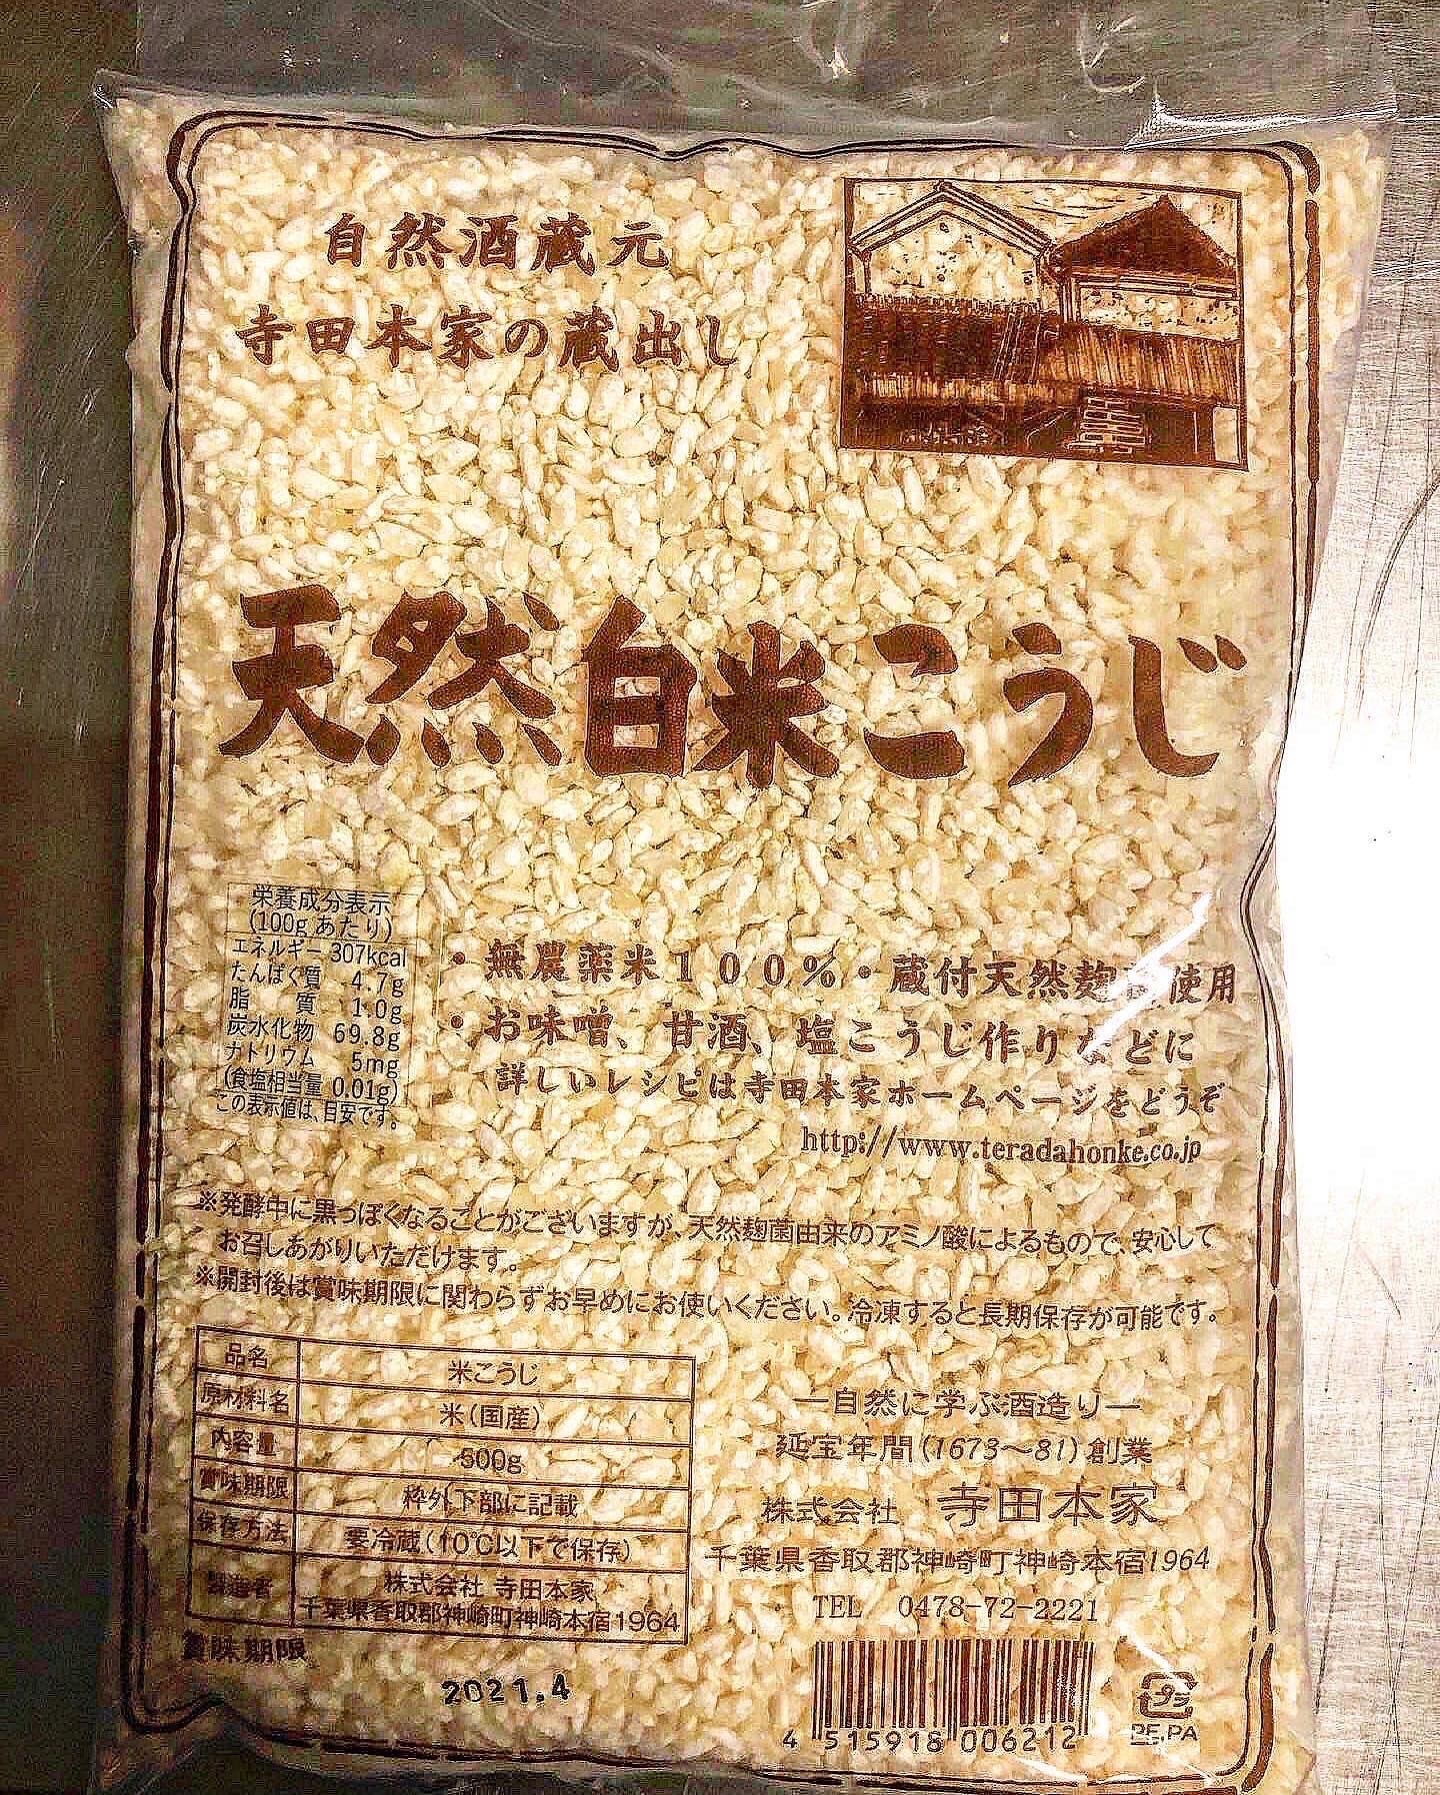 自然酒蔵元
寺田本家の蔵出し
天然白米こうじ
栄養成分表示
(100gあたり)
エネルギー 307kcal
たんぱく質 4.7g
脂質 1.0g
炭水化物 69.8g
ナトリウム 5mg
(食塩相当量 0.01g)
この表示値は、目安です。
・無農薬米100%・蔵付天然麹 使用
・お味噌、甘酒、塩こうじ作りなどに
詳しいレシピは寺田本家ホームページをどうぞ
http://www.teradahonke.co.jp
※発酵中に黒っぽくなることがございますが、天然麹菌由来のアミノ酸によるもので、安心して
お召しあがりいただけます。
※開封後は賞味期限に関わらずお早めにお使いください。冷凍すると長期保存が可能です。
品名 米こうじ
原材料名 米(国産)
内容量 500g
賞味期限 枠外下部に記載
保存方法 要冷蔵(10℃以下で保存)
製造者 株式会社 寺田本家
千葉県香取郡神崎町神崎本宿1964
賞味期限
2021.4
―自然に学ぶ酒造り―
延宝年間(1673～81)創業
株式会社 寺田本家
千葉県香取郡神崎町神崎本宿1964
TEL 0478-72-2221
4 515918 006212
プラ
PE,PA